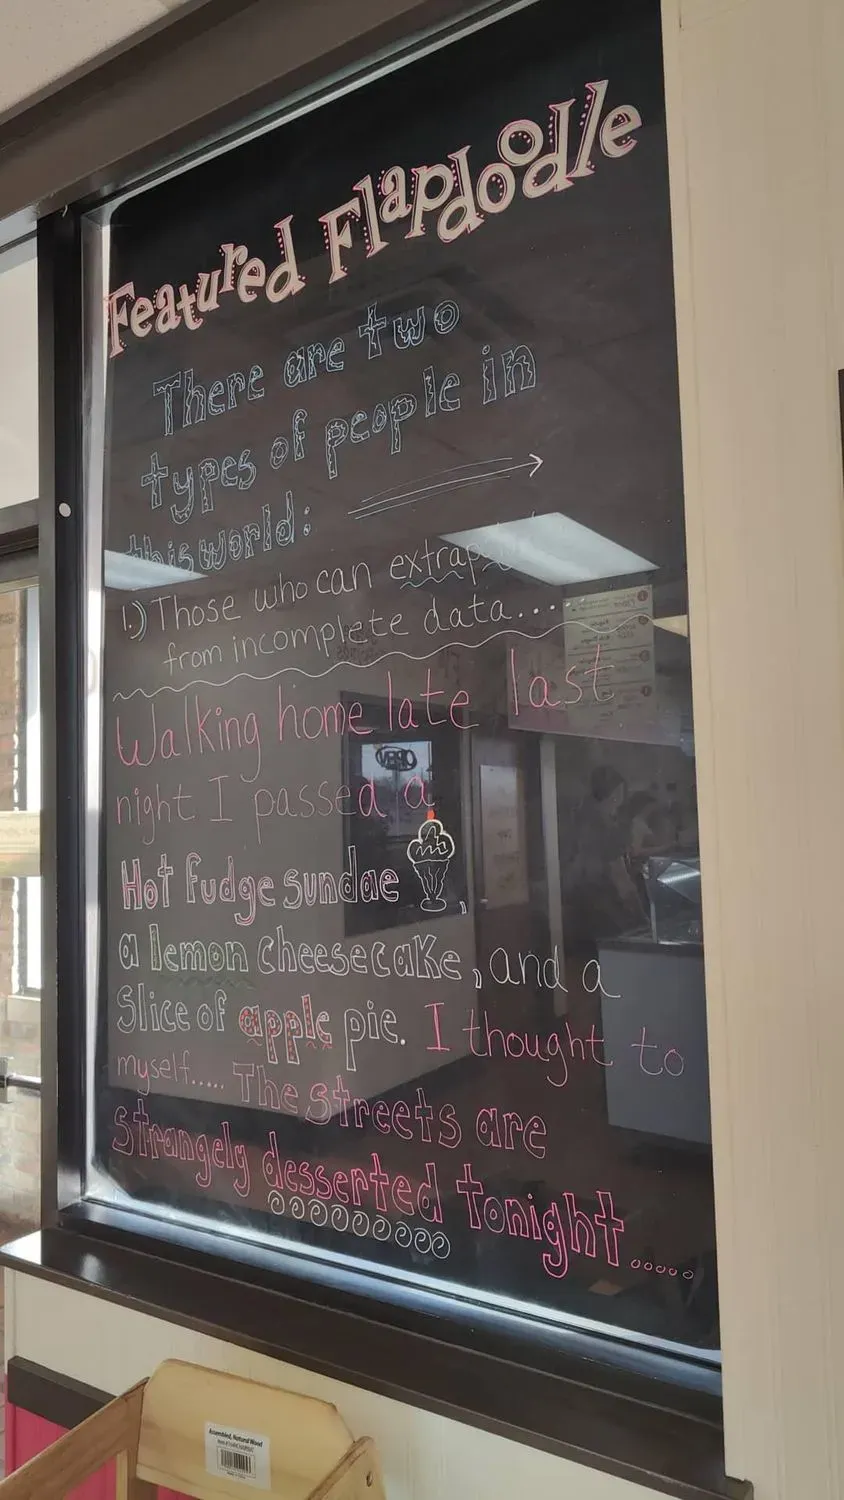 Featured Flapdoodle
There are two
types of people in
this world:
1.) Those who can
from incomplete data...
Walking home late last
night I passed a
Hot fudge sundae,
a lemon cheesecake, and a
Slice of apple pie. I thought to
myself..... The streets are
strangely desserted tonight.....
OPEN
Assembled, Natural Wood